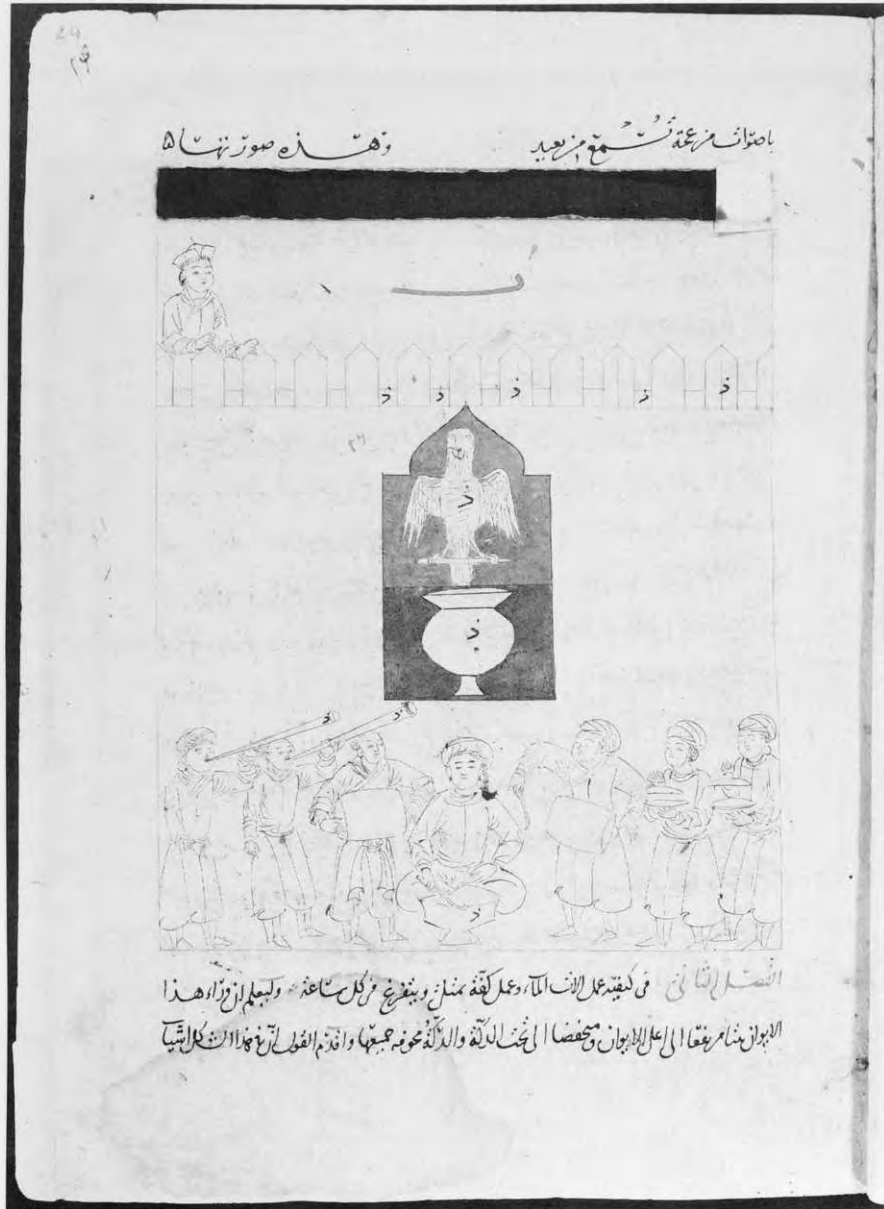 باصوات مزعجة تسمع من بعيد وهذه صورتها ۵
الفصل الثاني في كيفية عمل الات الماء وعمل كفة تمتلئ ويتفرغ في كل ساعة وليعلم ان وراء هذا
الايوان بيتا مرتفعا الى اعلى الايوان ومنخفضا الى تحت الدكة والدكة مجوفه جميعها واقدم القول ان في هذا الشكل اشيآ